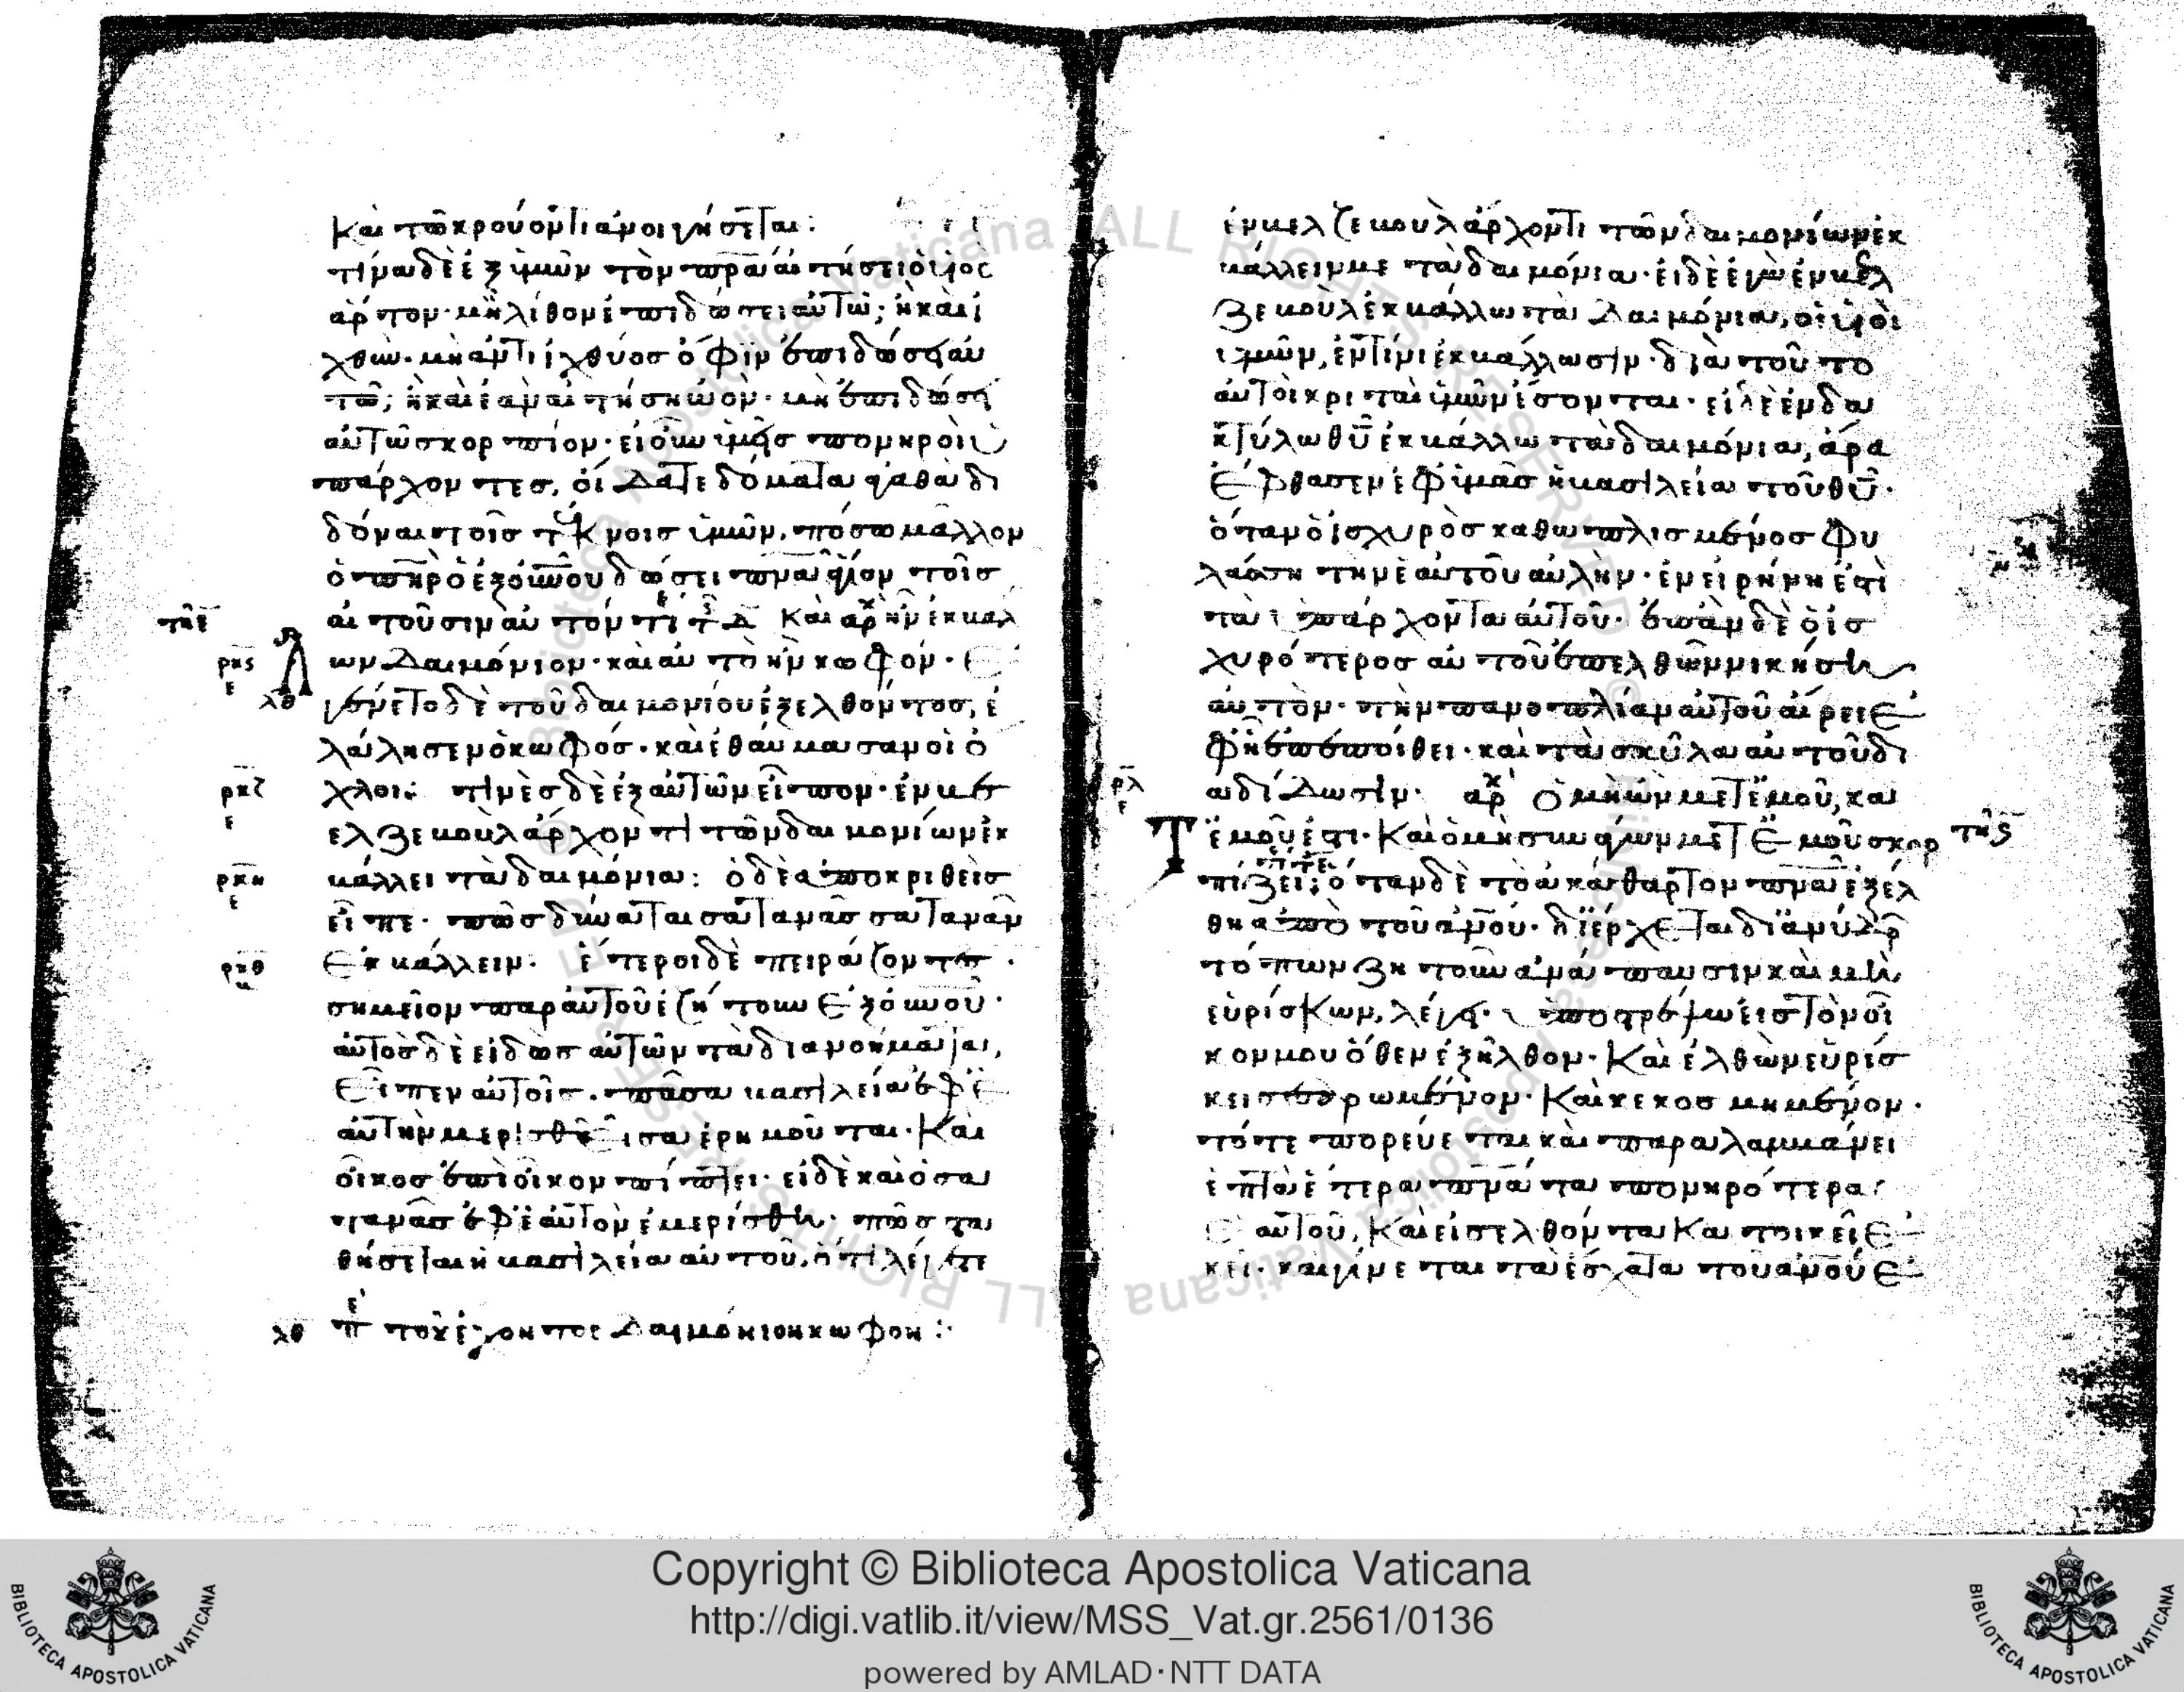 καὶ τῶ κρούοντι ἀνοιγήσεται:
τίνα δὲ ἐξ ὑμῶν τὸν πρα αἰτήσει ὁ υἱὸσ
ἄρτον· μὴ λίθον ἐπιδώσει αὐτῶ; ἢ καὶ ἰ
χθῦν· μὴ ἀντὶ ἰχθύοσ ὄφιν ἐπιδώσει αὐ
τῶ; ἢ καὶ ἐὰν αἰτήση ὠὸν· μὴ ἐπιδώσει
αὐτῶ σκορπίον· εἰ οὖν ὑμεῖσ πονηροὶ ὑ
πάρχοντεσ, οἴδατε δόματα ἀγαθὰ δι
δόναι τοῖσ τέκνοισ ὑμῶν, πόσω μᾶλλον
ὁ πηρ ὁ ἐξ οὐνου δώσει πνα ἅγιον τοῖσ
αἰτοῦσιν αὐτόν Καὶ ἦν ἐκβάλ
ων δαιμόνιον· καὶ αὐτὸ ἦν κωφόν· ἐ
γένετο δὲ τοῦ δαιμονίου ἐξελθόντοσ, ἐ
λάλησεν ὁ κωφόσ· καὶ ἐθαύμασαν οἱ ὄ
χλοι: τινὲσ δὲ ἐξ αὐτῶν εἶπον· ἐν βε
ελζεβοὺλ ἄρχοντι τῶν δαιμονίων ἐκ
βάλλει τὰ δαιμόνια: ὁ δὲ ἀποκριθεὶσ
εἶπε· πῶσ δύναται σατανᾶσ σατανᾶν
ἐκβάλλειν: ἕτεροι δὲ πειράζοντεσ·
σημεῖον παρ αὐτοῦ ἐζήτουν ἐξ οὐνοῦ·
αὐτὸσ δὲ εἰδὼσ αὐτῶν τὰ διανοήματα,
εἶπεν αὐτοῖσ· πᾶσα βασιλεία ἐφ ἑ
αὐτὴν μερισθεῖσα ἐρημοῦται· Καὶ
οἶκοσ ἐπὶ οἶκον πίπτει· εἰ δὲ καὶ ὁ σα
τανᾶσ ἐφ ἑαυτὸν ἐμερίσθη· πῶσ στα
θήσεται ἡ βασιλεία αὐτοῦ, ὅτι λέγετε
λθ τοῦ ἔχοντοσ δαιμόνιον κωφὸν:
ἐν βεελζεβοὺλ ἄρχοντι τῶν δαιμονίων ἐκ
βάλλειν με τὰ δαιμόνια· εἰ δὲ ἐγὼ ἐν βεελ
ζεβοὺλ ἐκβάλλω τὰ δαιμόνια, οἱ υἱοὶ
ὑμῶν, ἐν τίνι ἐκβάλλωσιν· διὰ τοῦτο
αὐτοὶ κριταὶ ὑμῶν ἔσονται· εἰ δὲ ἐν δα
κτύλω θυ ἐκβάλλω τὰ δαιμόνια, ἄρα
ἔφθασεν ἐφ ὑμᾶσ ἡ βασιλεία τοῦ θυ·
ὅταν ὁ ἰσχυρὸσ καθωπλισμένοσ φυ
λάσση τὴν ἑαυτοῦ αὐλήν· ἐν εἰρήνη ἐστὶ
τὰ ὑπάρχοντα αὐτοῦ· ἐπὰν δὲ ὁ ἰσ
χυρότεροσ αὐτοῦ ἐπελθὼν νικήση
αὐτὸν· τὴν πανοπλίαν αὐτοῦ αἴρει ἐ
φ ἧ ἐπεποίθει· καὶ τὰ σκῦλα αὐτοῦ δι
αδίδωσιν· Ὁ μὴ ὢν μετ ἐμοῦ, κατ
ἐμοῦ ἐστι· Καὶ ὁ μὴ συνάγων μετ ἐμοῦ σκορ
πίζει; ὅταν δὲ τὸ ἀκάθαρτον πνα ἐξέλ
θη ἀπὸ τοῦ ανου· διέρχεται δι ἀνύδρων
τόπων ζητοῦν ἀνάπαυσιν καὶ μὴ
εὑρίσκων, λέγει· ὑποστρέψω εἰσ τὸν οἶ
κον μου ὅθεν ἐξῆλθον· Καὶ ἐλθὼν εὑρίσ
κει σεσαρωμένον· Καὶ κεκοσμημένον·
τότε πορεύεται καὶ παραλαμβάνει
ἑπτὰ ἕτερα πνατα πονηρότερα
ἑαυτοῦ, Καὶ εἰσελθόντα κατοικεῖ ἐ
κεῖ· καὶ γίνεται τὰ ἔσχατα τοῦ ανου ἐ